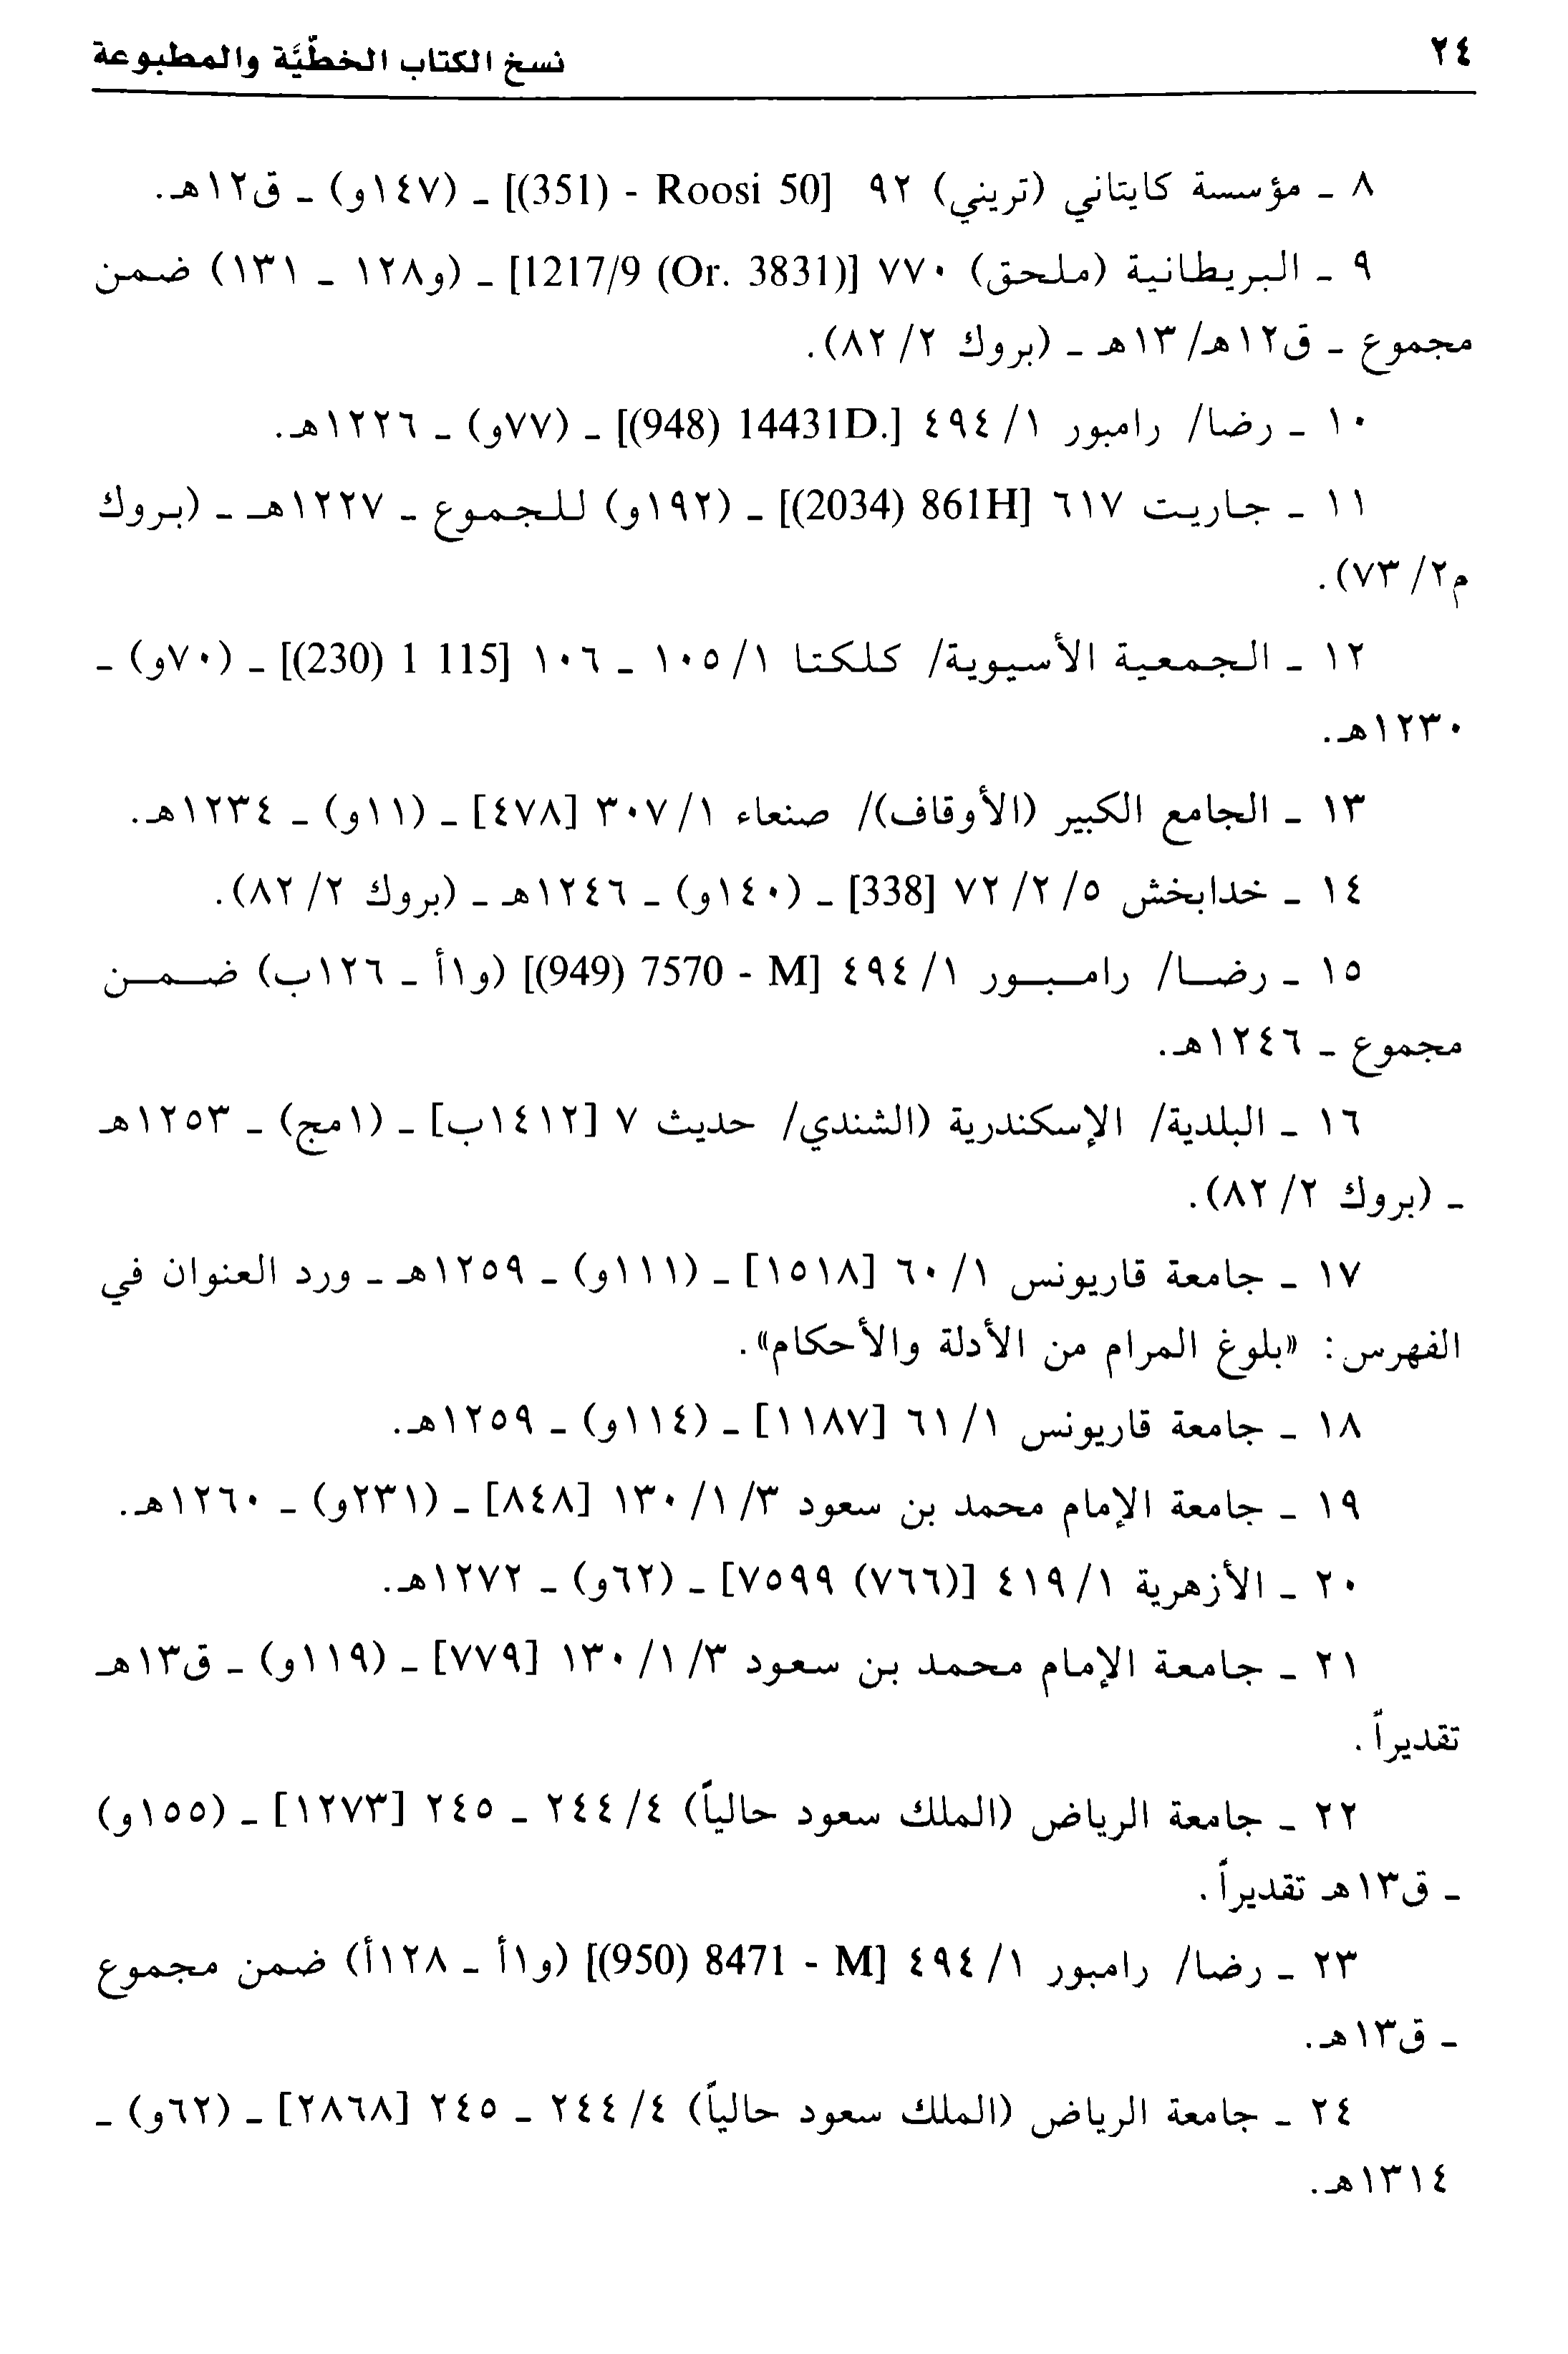 ٢٤
نسخ الكتاب الخطّيَّة والمطبوعة
٨ ـ مؤسسة كايتاني (تريني) ٩٢ [Roosi 50 - (351)] ـ (١٤٧و) ـ ق١٢هـ.
٩ ـ البريطانية (ملحق) ٧٧٠ [1217/9 (Or. 3831)] ـ (و١٢٨ ـ ١٣١) ضمن
مجموع ـ ق١٢هـ/ ١٣هـ ـ (بروك ٢/ ٨٢).
١٠ ـ رضا/ رامبور ١/ ٤٩٤ [.14431D (948)] ـ (٧٧و) ـ ١٢٢٦هـ.
١١ ـ جاريت ٦١٧ [861H (2034)] ـ (١٩٢و) للجموع ـ ١٢٢٧هـ ـ (بروك
م٢/ ٧٣).
١٢ ـ الجمعية الأسيوية/ كلكتا ١/ ١٠٥ ـ ١٠٦ [115 1 (230)] ـ (٧٠و) ـ
١٢٣٠هـ.
١٣ ـ الجامع الكبير (الأوقاف)/ صنعاء ١/ ٣٠٧ [٤٧٨] ـ (١١و) ـ ١٢٣٤هـ.
١٤ ـ خدابخش ٥/ ٢/ ٧٢ [338] ـ (١٤٠و) ـ ١٢٤٦هـ ـ (بروك ٢/ ٨٢).
١٥ ـ رضا/ رامبور ١/ ٤٩٤ [M - 7570 (949)] (و١أ ـ ١٢٦ب) ضمن
مجموع ـ ١٢٤٦هـ.
١٦ ـ البلدية/ الإسكندرية (الشندي/ حديث ٧ [١٤١٢ب] ـ (١مج) ـ ١٢٥٣هـ
ـ (بروك ٢/ ٨٢).
١٧ ـ جامعة قاريونس ١/ ٦٠ [١٥١٨] ـ (١١١و) ـ ١٢٥٩هـ ـ ورد العنوان في
الفهرس: «بلوغ المرام من الأدلة والأحكام».
١٨ ـ جامعة قاريونس ١/ ٦١ [١١٨٧] ـ (١١٤و) ـ ١٢٥٩هـ.
١٩ ـ جامعة الإمام محمد بن سعود ٣/ ١/ ١٣٠ [٨٤٨] ـ (٢٣١و) ـ ١٢٦٠هـ.
٢٠ ـ الأزهرية ١/ ٤١٩ [(٧٦٦) ٧٥٩٩] ـ (٦٢و) ـ ١٢٧٢هـ.
٢١ ـ جامعة الإمام محمد بن سعود ٣/ ١/ ١٣٠ [٧٧٩] ـ (١١٩و) ـ ق١٣هـ
تقديراً.
٢٢ ـ جامعة الرياض (الملك سعود حالياً) ٤/ ٢٤٤ ـ ٢٤٥ [١٢٧٣] ـ (١٥٥و)
ـ ق١٣هـ تقديراً.
٢٣ ـ رضا/ رامبور ١/ ٤٩٤ [M - 8471 (950)] (و١أ ـ ١٢٨أ) ضمن مجموع
ـ ق١٣هـ.
٢٤ ـ جامعة الرياض (الملك سعود حالياً) ٤/ ٢٤٤ ـ ٢٤٥ [٢٨٦٨] ـ (٦٢و) ـ
١٣١٤هـ.